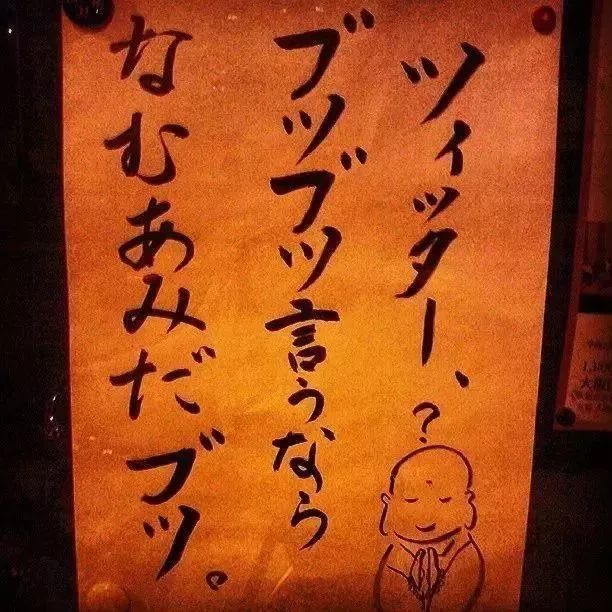 ツィッター、?
ブツブツ言うなら
なむあみだブツ。